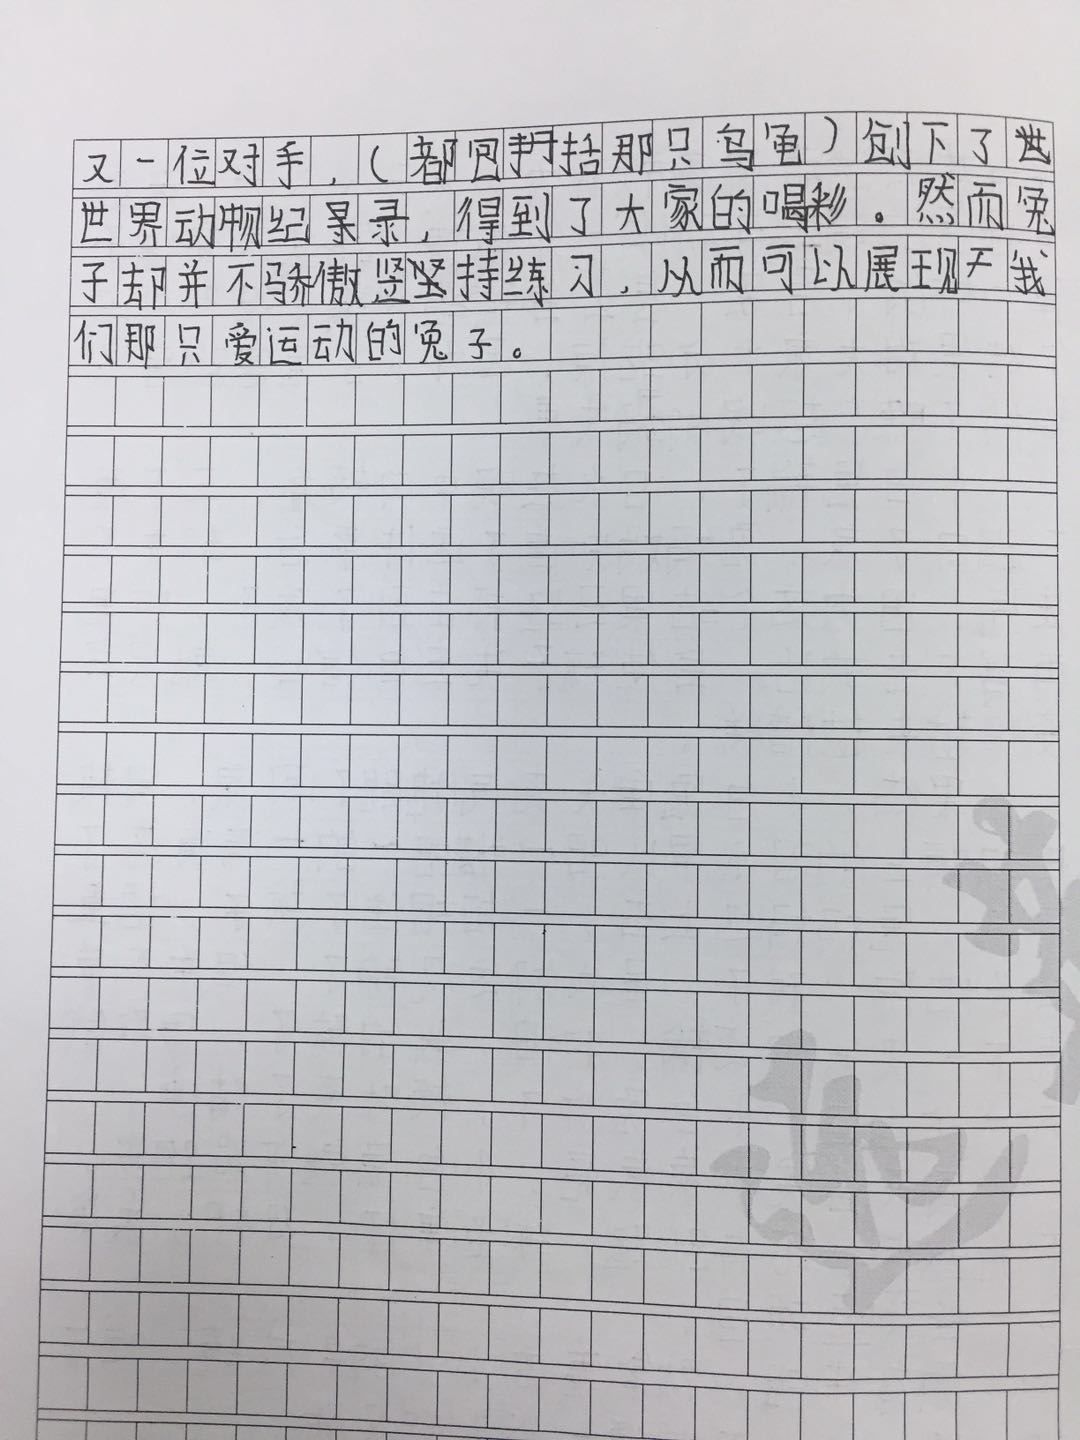 又一位对手，（都包括那只乌龟）创下了
世界动物纪录，得到了大家的喝彩。然而兔
子却并不骄傲坚持练习，从而可以展现我
们那只爱运动的兔子。